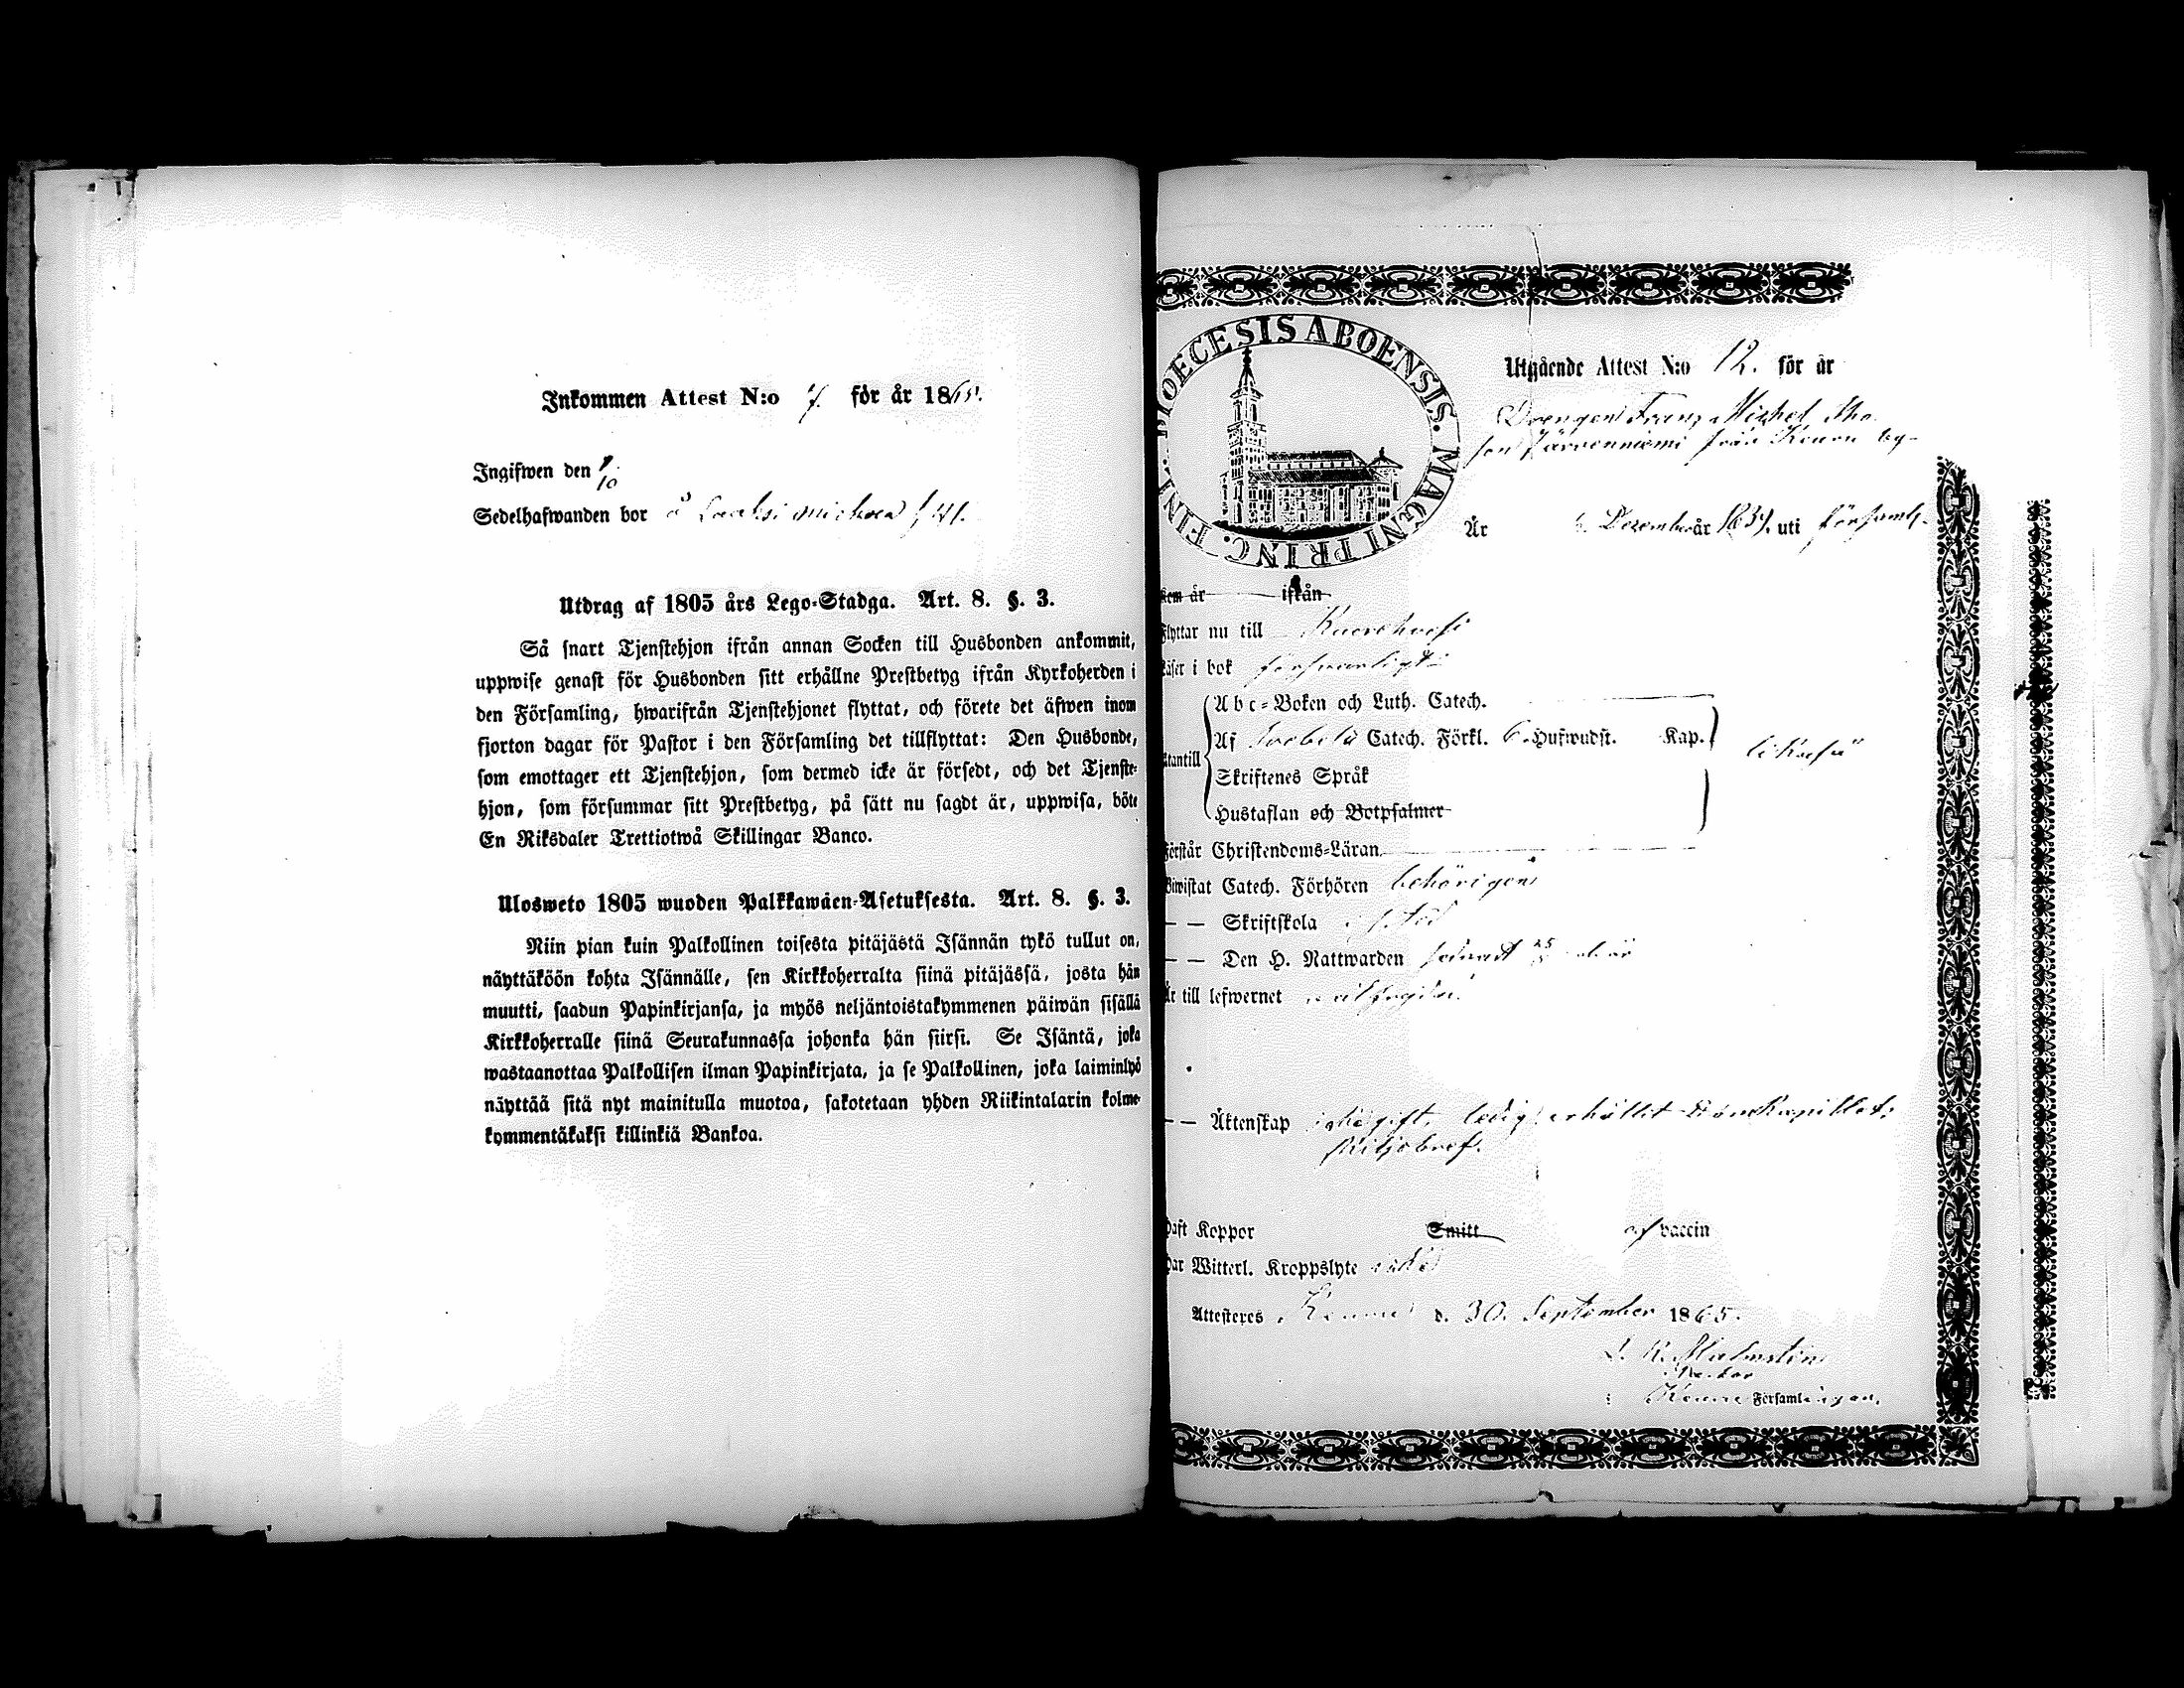 Inkommen Attest N:o 7. för år 1865.
Ingifwen den 7/10
Sedelhafwanden bor å
Utdrag af 1805 års Lego-Stadga. Art. 8. §. 3.
Så snart Tjenstehjon ifrån annan Socken till Husbonden ankommit,
uppwise genast för Husbonden sitt erhållne Prestbetyg ifrån Kyrkoherden i
den Församling, hwarifrån Tjenstehjonet flyttat, och förete det äfwen inom
fjorton dagar för Pastor i den Församling det tillflyttat: Den Husbonde,
som emottager ett Tjenstehjon, som dermed icke är försedt, och det Tjenste-
hjon, som försummar sitt Prestbetyg, på sätt nu sagdt är, uppwisa, böte
En Riksdaler Trettiotwå Skillingar Banco.
Ulosweto 1805 wuoden Palkkawäen-Asetuksesta. Art. 8. §. 3.
Niin pian kuin Palkollinen toisesta pitäjästä Isännän tykö tullut on,
näyttäköön kohta Isännälle, sen Kirkkoherralta siinä pitäjässä, josta hän
muutti, saadun Papinkirjansa, ja myös neljäntoistakymmenen päiwän sisällä
Kirkkoherralle siinä Seurakunnassa johonka hän siirsi. Se Isäntä, joka
wastaanottaa Palkollisen ilman Papinkirjata, ja se Palkollinen, joka laiminlyö
näyttää sitä nyt mainitulla muotoa, sakotetaan yhden Riikintalarin kolme-
kymmentäkaksi killinkiä Bankoa.
DIOECESIS ABOENSIS. MAGNI PRINC. FINL.
Utgående Attest N:o 12. för år
Drengen Franz Michel Tho
son Järvenniemi från Keuru by-
Är December år 1834. uti församl.
kom år ifrån
Flyttar nu till Kuorehvesi
Läser i bok försvarligt
Abc-Boken och Luth. Catech.
Af Svebelii Catech. Förkl. 6 Hufwudst. Kap.
Utantill likaså
Skriftenes Språk
Hustaflan och Botpsalmer
Förstår Christendoms-Läran
Biwistat Catech. Förhören behörigen
— — Skriftskola
— — Den H. Nattwarden senast 25
Är till lefwernet
— — Äktenskap ogift, ledig, erhållit
skiljobref.
Haft Koppor Smitt af vaccin
Har Witterl. Kroppslyte
Attesteres Keuru d. 30. September 1865.
Malmstén
Keuru Församlingen.